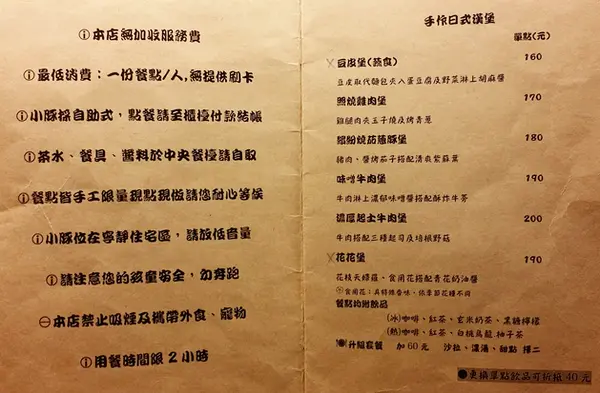 ⓘ本店無加收服務費
ⓘ最低消費：一份餐點/人,無提供刷卡
ⓘ小豚採自助式，點餐請至櫃檯付款結帳
ⓘ茶水、餐具、醬料於中央餐檯請自取
ⓘ餐點皆手工限量現點現做請您耐心等候
ⓘ小豚位在寧靜住宅區，請放低音量
ⓘ請注意您的孩童安全，勿奔跑
⊖本店禁止吸煙及攜帶外食、寵物
ⓘ用餐時間限2小時
手作日式漢堡
單點(元)
豆皮堡(蔬食) 160
豆皮取代麵包夾入蛋豆腐及野菜淋上胡麻醬
照燒雞肉堡 170
雞腿肉夾玉子燒及烤青蔥
繽紛燒茄薑豚堡 180
豬肉、醬烤茄子搭配清爽紫蘇葉
味噌牛肉堡 190
牛肉淋上濃郁味噌醬搭配酥炸牛蒡
濃厚起士牛肉堡 200
牛肉搭配三種起司及培根野菇
花花堡 190
花枝天婦羅、食用花搭配青花奶油醬
食用花：具特殊香味，依季節花種不同
餐點均附飲品
(冰)咖啡、紅茶、玄米奶茶、黑糖檸檬
(熱)咖啡、紅茶、白桃烏龍.柚子茶
升級套餐 加60元 沙拉、濃湯、甜點 擇二
●更換單點飲品可折抵40元